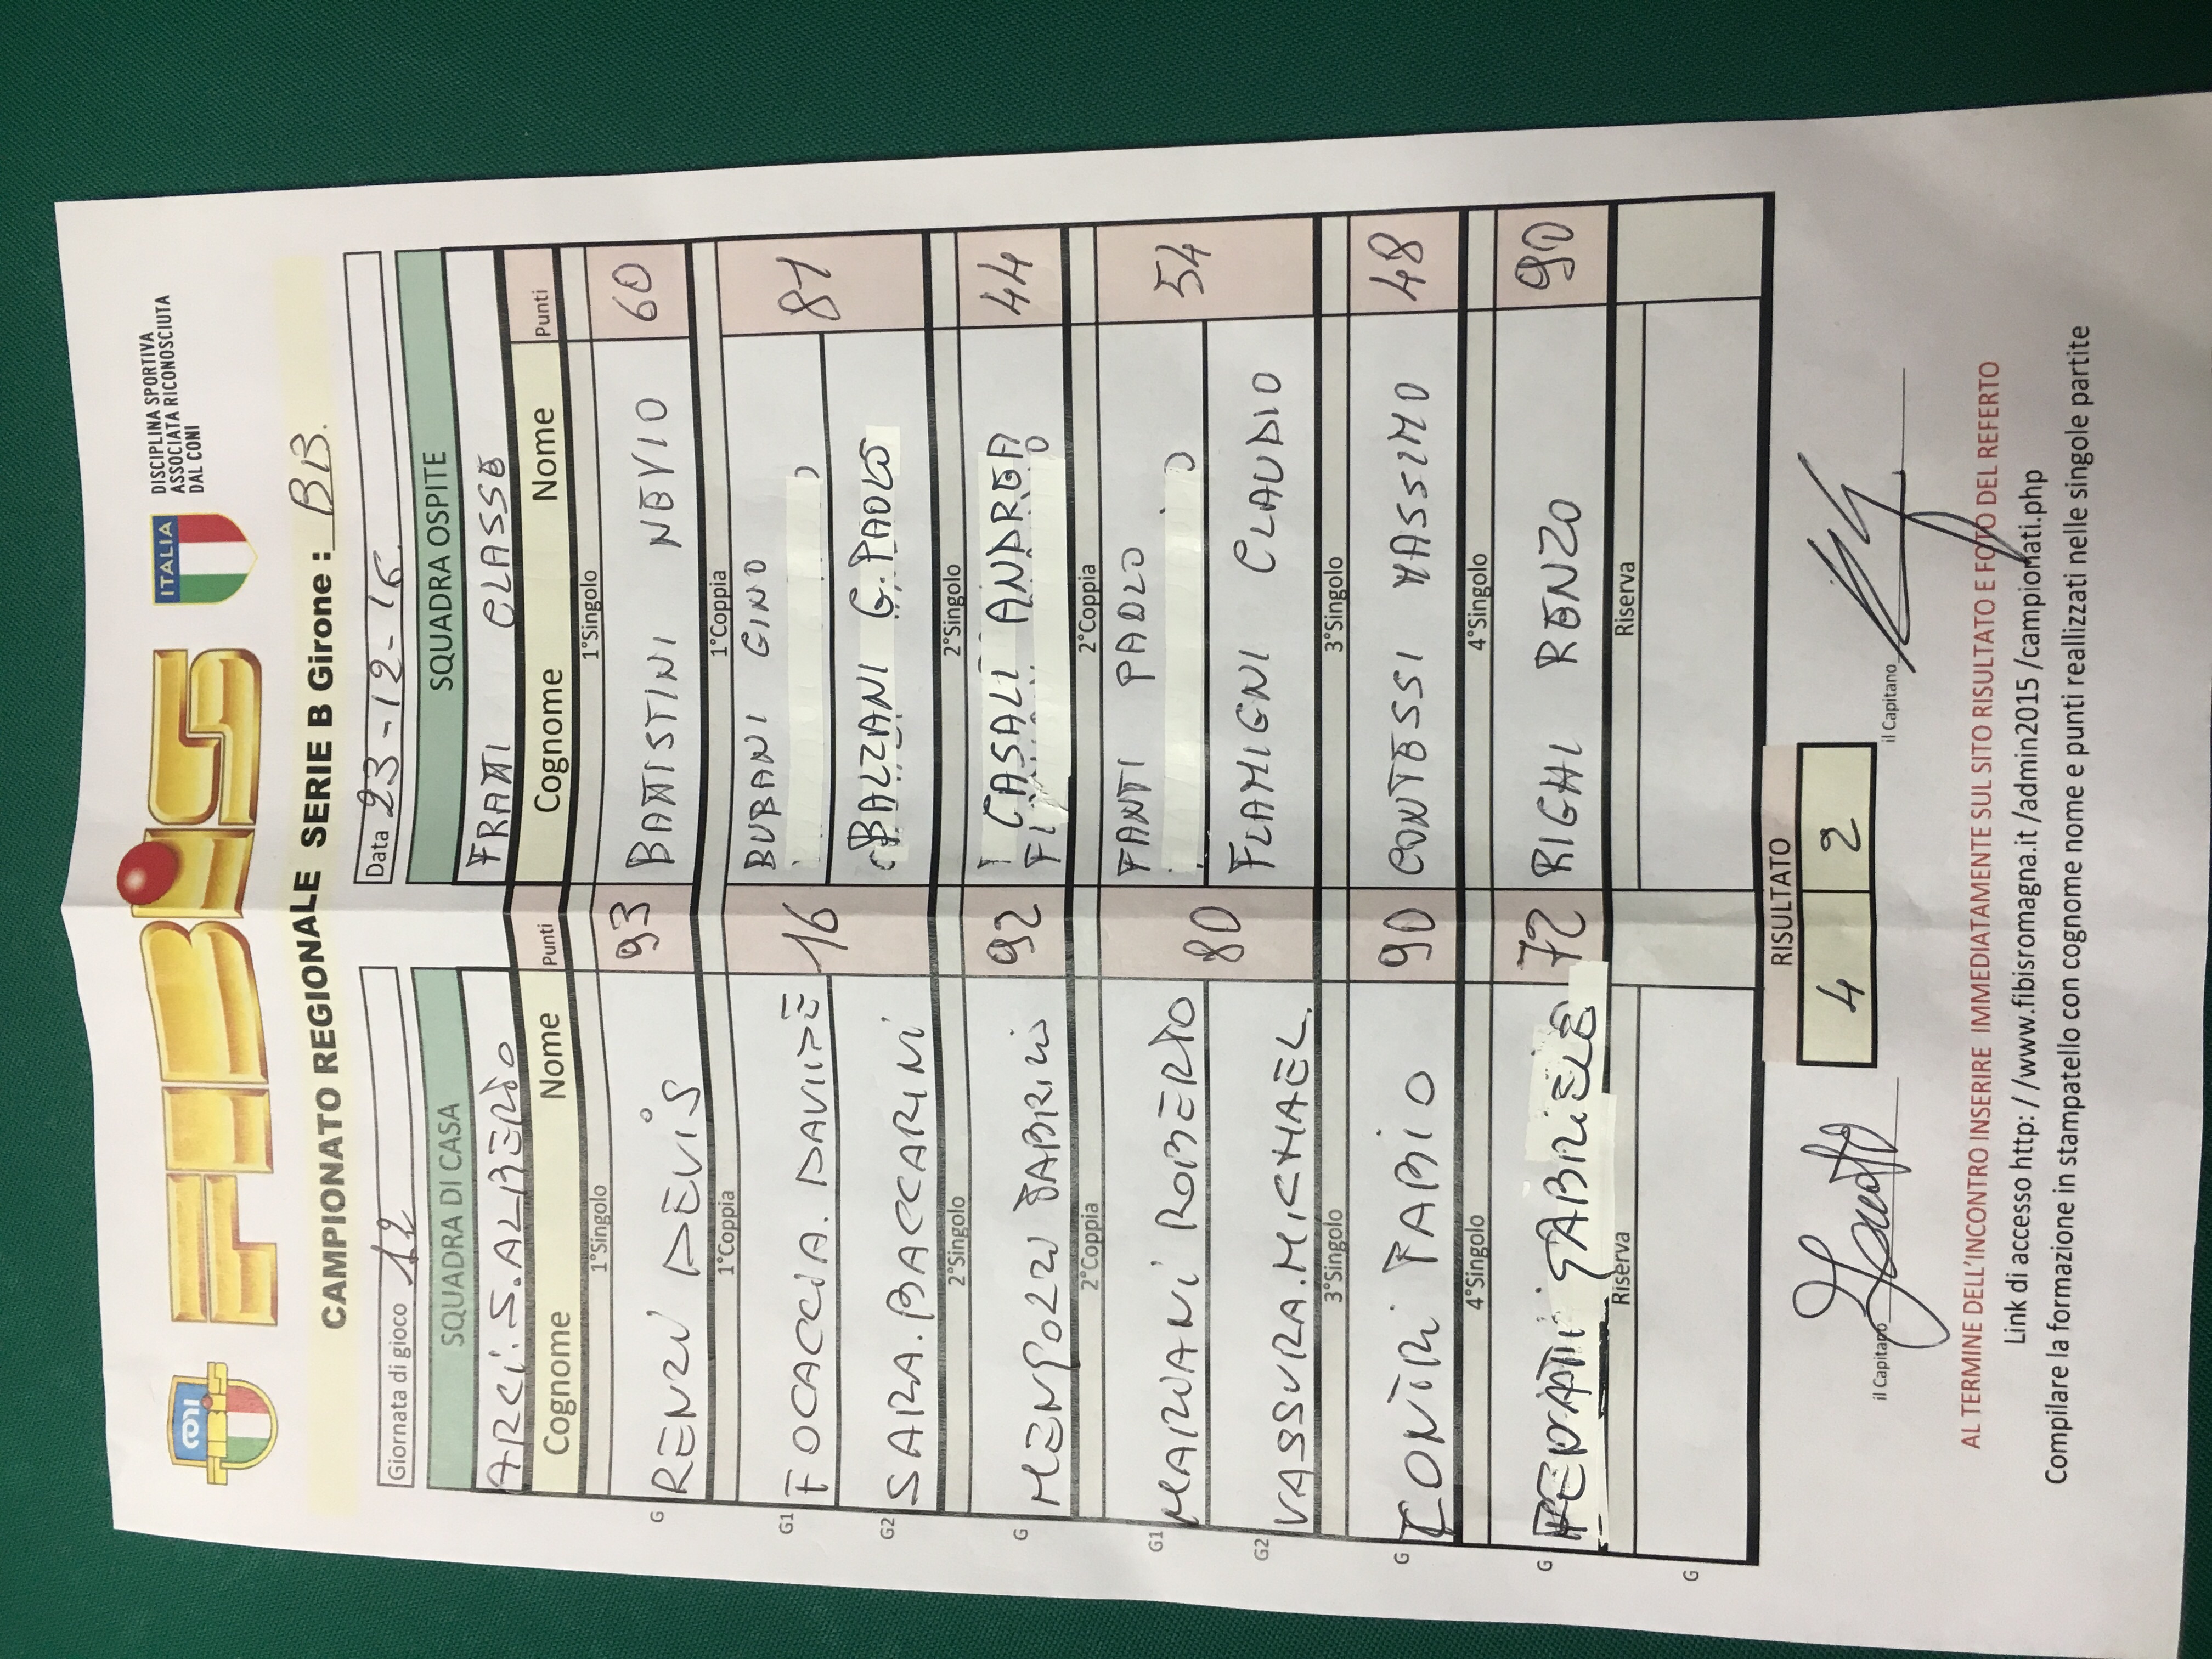 FIBIS
ITALIA
DISCIPLINA SPORTIVA
ASSOCIATA RICONOSCIUTA
DAL CONI
CAMPIONATO REGIONALE SERIE B Girone : B13.
Giornata di gioco 12 Data 23-12-16
SQUADRA DI CASA SQUADRA OSPITE
ARCI.S.ALBERTO FRATTI CLASSE
Cognome Nome Punti Cognome Nome Punti
1°Singolo 1°Singolo
G RENZI DEVIS 93 BATTISTINI NEVIO 60
1°Coppia 1°Coppia
G1 FOCACCIA. DAVIDE 16 BUBANI GINO 81
G2 SARA. BACCARINI BALZANI G.PAOLO
2°Singolo 2°Singolo
G MENPOZZI FABRIZI 92 CASALI ANDREA 44
2°Coppia 2°Coppia
G1 MARZIANI ROBERTO 80 FANTI PAOLO 54
G2 VASSURA.MICHAEL. FLAMIGNI CLAUDIO
3°Singolo 3°Singolo
G CONTRI FABIO 90 CONTESSI MASSIMO 48
4°Singolo 4°Singolo
G GABRIELE 72 RIGHI RENZO 90
Riserva Riserva
G
RISULTATO
4 2
il Capitano il Capitano
AL TERMINE DELL'INCONTRO INSERIRE IMMEDIATAMENTE SUL SITO RISULTATO E FOTO DEL REFERTO
Link di accesso http: / /www.fibisromagna.it /admin2015 /campionati.php
Compilare la formazione in stampatello con cognome nome e punti reallizzati nelle singole partite